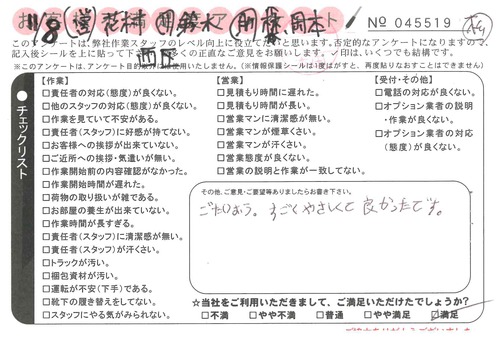 11/8 営 花木 月 鈴木 助 森、岡本
西下
No 045519
このアンケートは、弊社作業スタッフのレベル向上に役立てたいと思います。否定的なアンケートになりますので、
※このアンケートは、アンケート目的以外には使用いたしません。(※情報保護シールは1度はがすと、再度貼りなおすことはできません)
チェックリスト
【作業】
□責任者の対応(態度)が良くない。
□他のスタッフの対応(態度)が良くない。
□作業を見ていて不安がある。
□責任者(スタッフ)に好感が持てない。
□お客様への挨拶が出来ていない。
□ご近所への挨拶・気遣いが無い。
□作業開始前の内容確認がなかった。
□作業開始時間が遅れた。
□荷物の取り扱いが雑である。
□お部屋の養生が出来ていない。
□作業時間が長すぎる。
□責任者(スタッフ)に清潔感が無い。
□責任者(スタッフ)が汗くさい。
□トラックが汚い。
□梱包資材が汚い。
□運転が不安(下手)である。
□靴下の履き替えをしてない。
□スタッフにやる気がみられない。
【営業】
□見積もり時間に遅れた。
□見積もり時間が長い。
□営業マンに清潔感が無い。
□営業マンが煙草くさい。
□営業マンが汗くさい。
□営業態度が良くない。
□営業の説明と作業が一致してない。
【受付・その他】
□電話の対応が良くない。
□オプション業者の説明
・作業が良くない。
□オプション業者の対応
(態度)が良くない。
その他、ご意見・ご要望等ありましたらお書き下さい。
すごくやさしくて良かったです。
☆当社をご利用いただきまして、ご満足いただけたでしょうか?
□不満 □やや不満 □普通 □やや満足 □満足